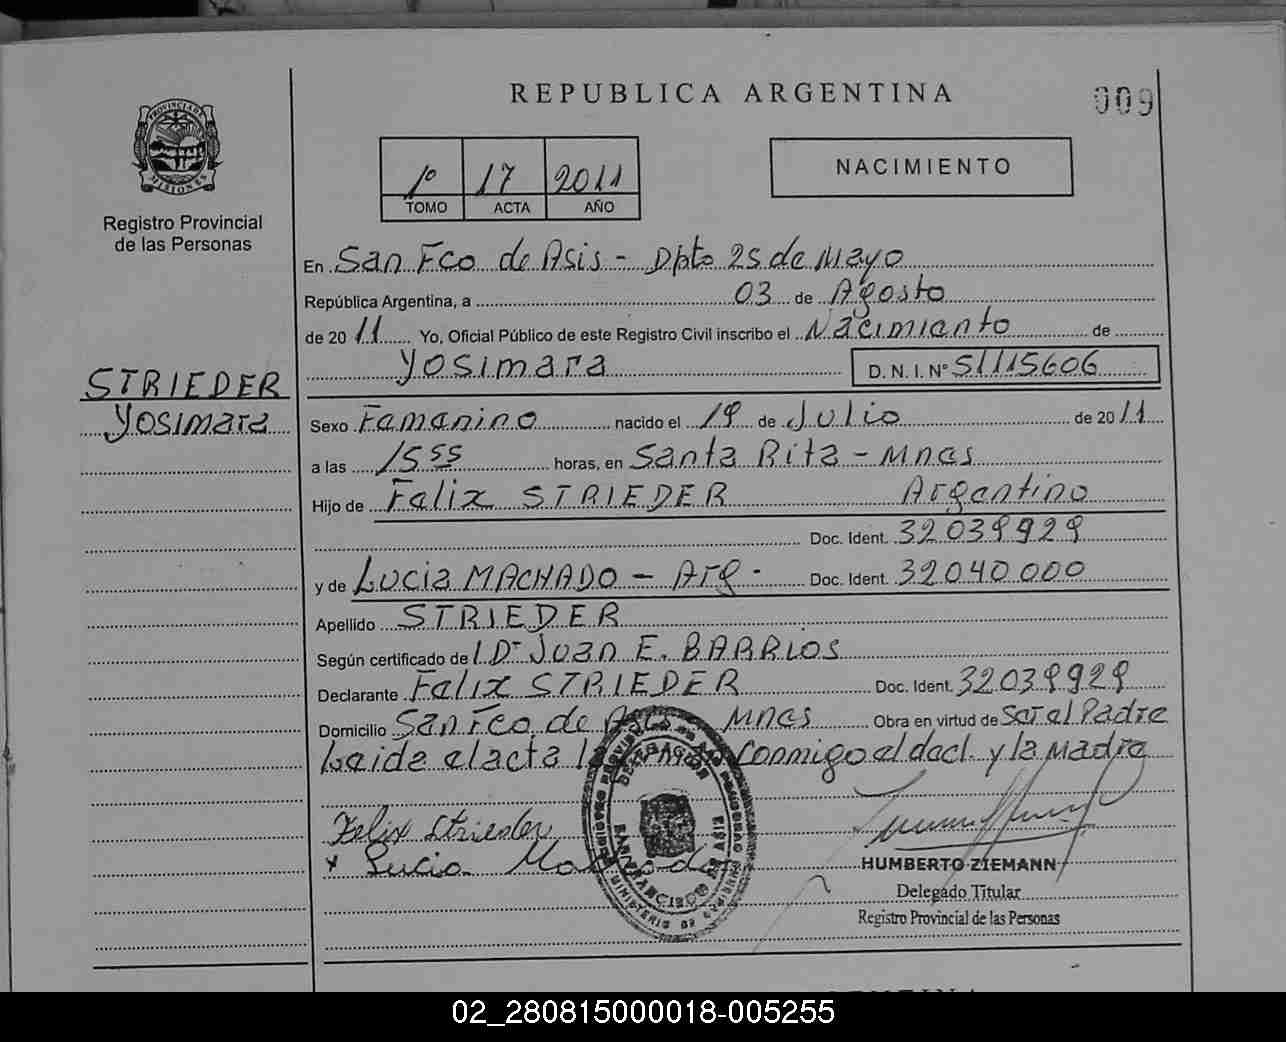 REPUBLICA ARGENTINA
009
PROVINCIA DE MISIONES
Registro Provincial
de las Personas
1º 17 2011
TOMO ACTA AÑO
NACIMIENTO
En San Fco de Asis - Dpto 25 de Mayo
República Argentina, a 03 de Agosto
de 2011 Yo, Oficial Público de este Registro Civil inscribo el Nacimiento de
Yosimara D. N. I. Nº 51115606
STRIEDER
Yosimara
Sexo Femenino nacido el 19 de Julio de 2011
a las 15 55 horas, en Santa Rita - Mnes
Hijo de Felix STRIEDER Argentino
Doc. Ident. 32039929
y de Lucia MACHADO - Arg. Doc. Ident. 32040000
Apellido STRIEDER
Según certificado de l Dr Juan E. BARRIOS
Declarante Felix STRIEDER Doc. Ident. 32039929
Domicilio San Fco. de Asis Mnes Obra en virtud de Ser el Padre
Leida el acta la conmigo el decl. y la Madre
Felix Strieder
x Lucia Machado
HUMBERTO ZIEMANN
Delegado Titular
Registro Provincial de las Personas
02_280815000018-005255